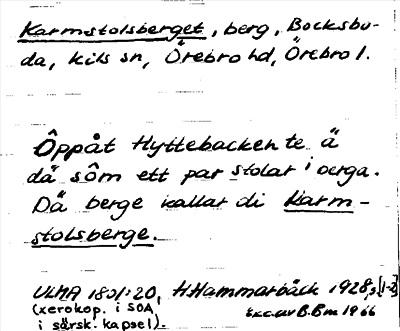 Karmstolsberget, berg, Bocksbo-
da, kils sn, Örebro hd, Örebro l.
Ôppåt Hyttebacken te ä
dä sôm ett par stolar i berga.
Dä berge kallar di Karm-
stolsberge.
ULMA 1801:20, H.Hammarbäck 1928, s.[1-2]
(xerokop. i SOA,
i särsk. kapsel). Exc. av B.Bm 1966